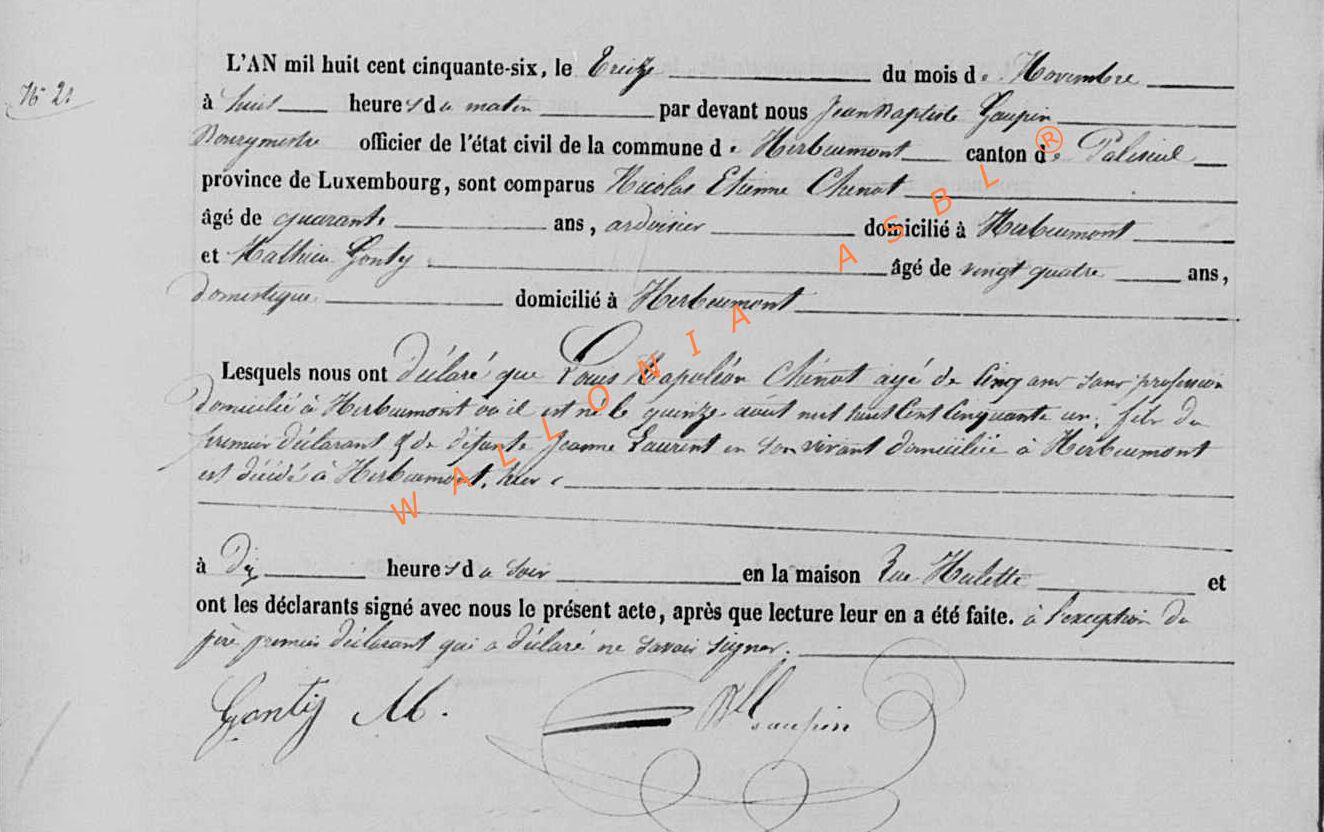 N° 21
L'AN mil huit cent cinquante-six, le Treize du mois de Novembre
à huit heures du matin par devant nous Jean Baptiste Gaupin
Bourgmestre officier de l'état civil de la commune de Herbeumont canton de Paliseul
province de Luxembourg, sont comparus Nicolas Etienne Chenot
âgé de quarante ans, ardoisier domicilié à Herbeumont
et Mathieu Gonty âgé de vingt quatre ans,
domestique domicilié à Herbeumont
Lesquels nous ont déclaré que Louis Napoléon Chénot agé de Cinq ans sans profession
domicilié à Herbeumont où il est né le quinze août mil huit Cent Cinquante un, fils du
premier déclarant & de défunte Jeanne Laurent en son vivant domiciliée à Herbeumont
est décédé à Herbeumont, hier
à Dix heures du soir en la maison Rue Hulette et
ont les déclarants signé avec nous le présent acte, après que lecture leur en a été faite. à l'exception du
père premier déclarant qui a déclaré ne savoir signer.
Gontij M. Gaupin
WALLONIA ASBL ®